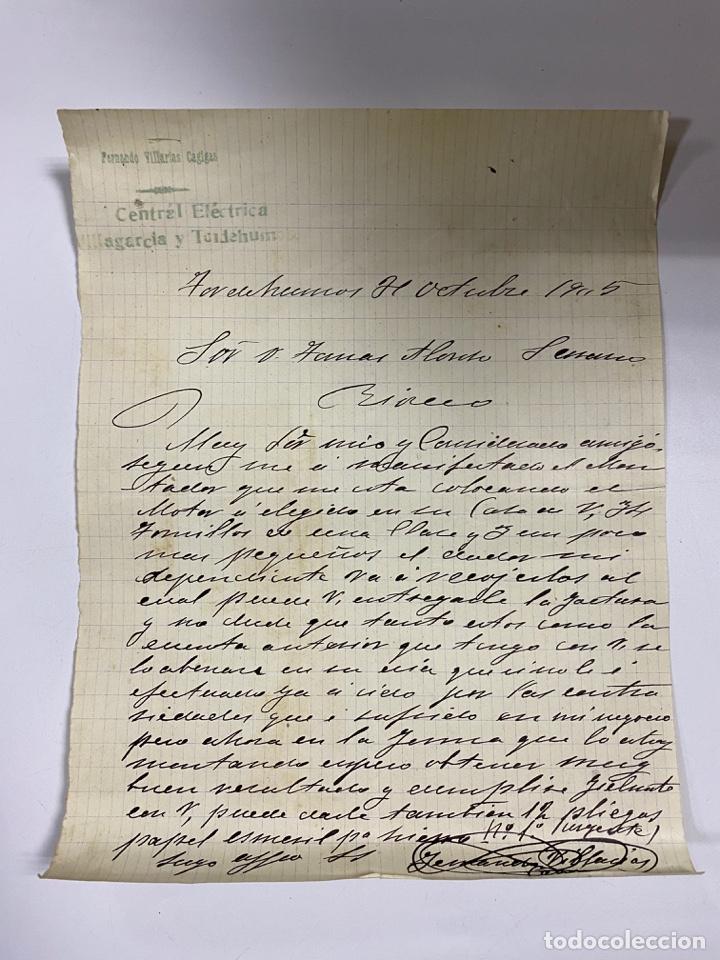 Fernando Villarias Cagigas
Central Eléctrica
Villagarcia y Tordehumos
Tordehumos 31 Octubre 1915
Sor D. Tomas Alonso Serrano
Rioseco
Muy Sor mio y Considerado amigo,
segun me á manifestado el Mon
tador que me esta colocando el
Motor á elegido en su Casa de V,
Tornillos de una Clase y un poco
mas pequeños el dador mi
dependiente va á recojerlos al
cual puede V, entregarle la factura
y no dude que tanto estos como la
cuenta anterior que tengo con V, se
lo abonare en su dia que si no le é
efectuado ya á sido por las contra
riedades que é sufrido en mi negocio
pero ahora en la forma que lo estoy
montando espero obtener muy
buen resultado y cumplire fielmente
con V, puede darle tambien 12 pliegos
papel Esmeril pa hierro
suyo affmo SS
Fernando Villarias
todocoleccion.net